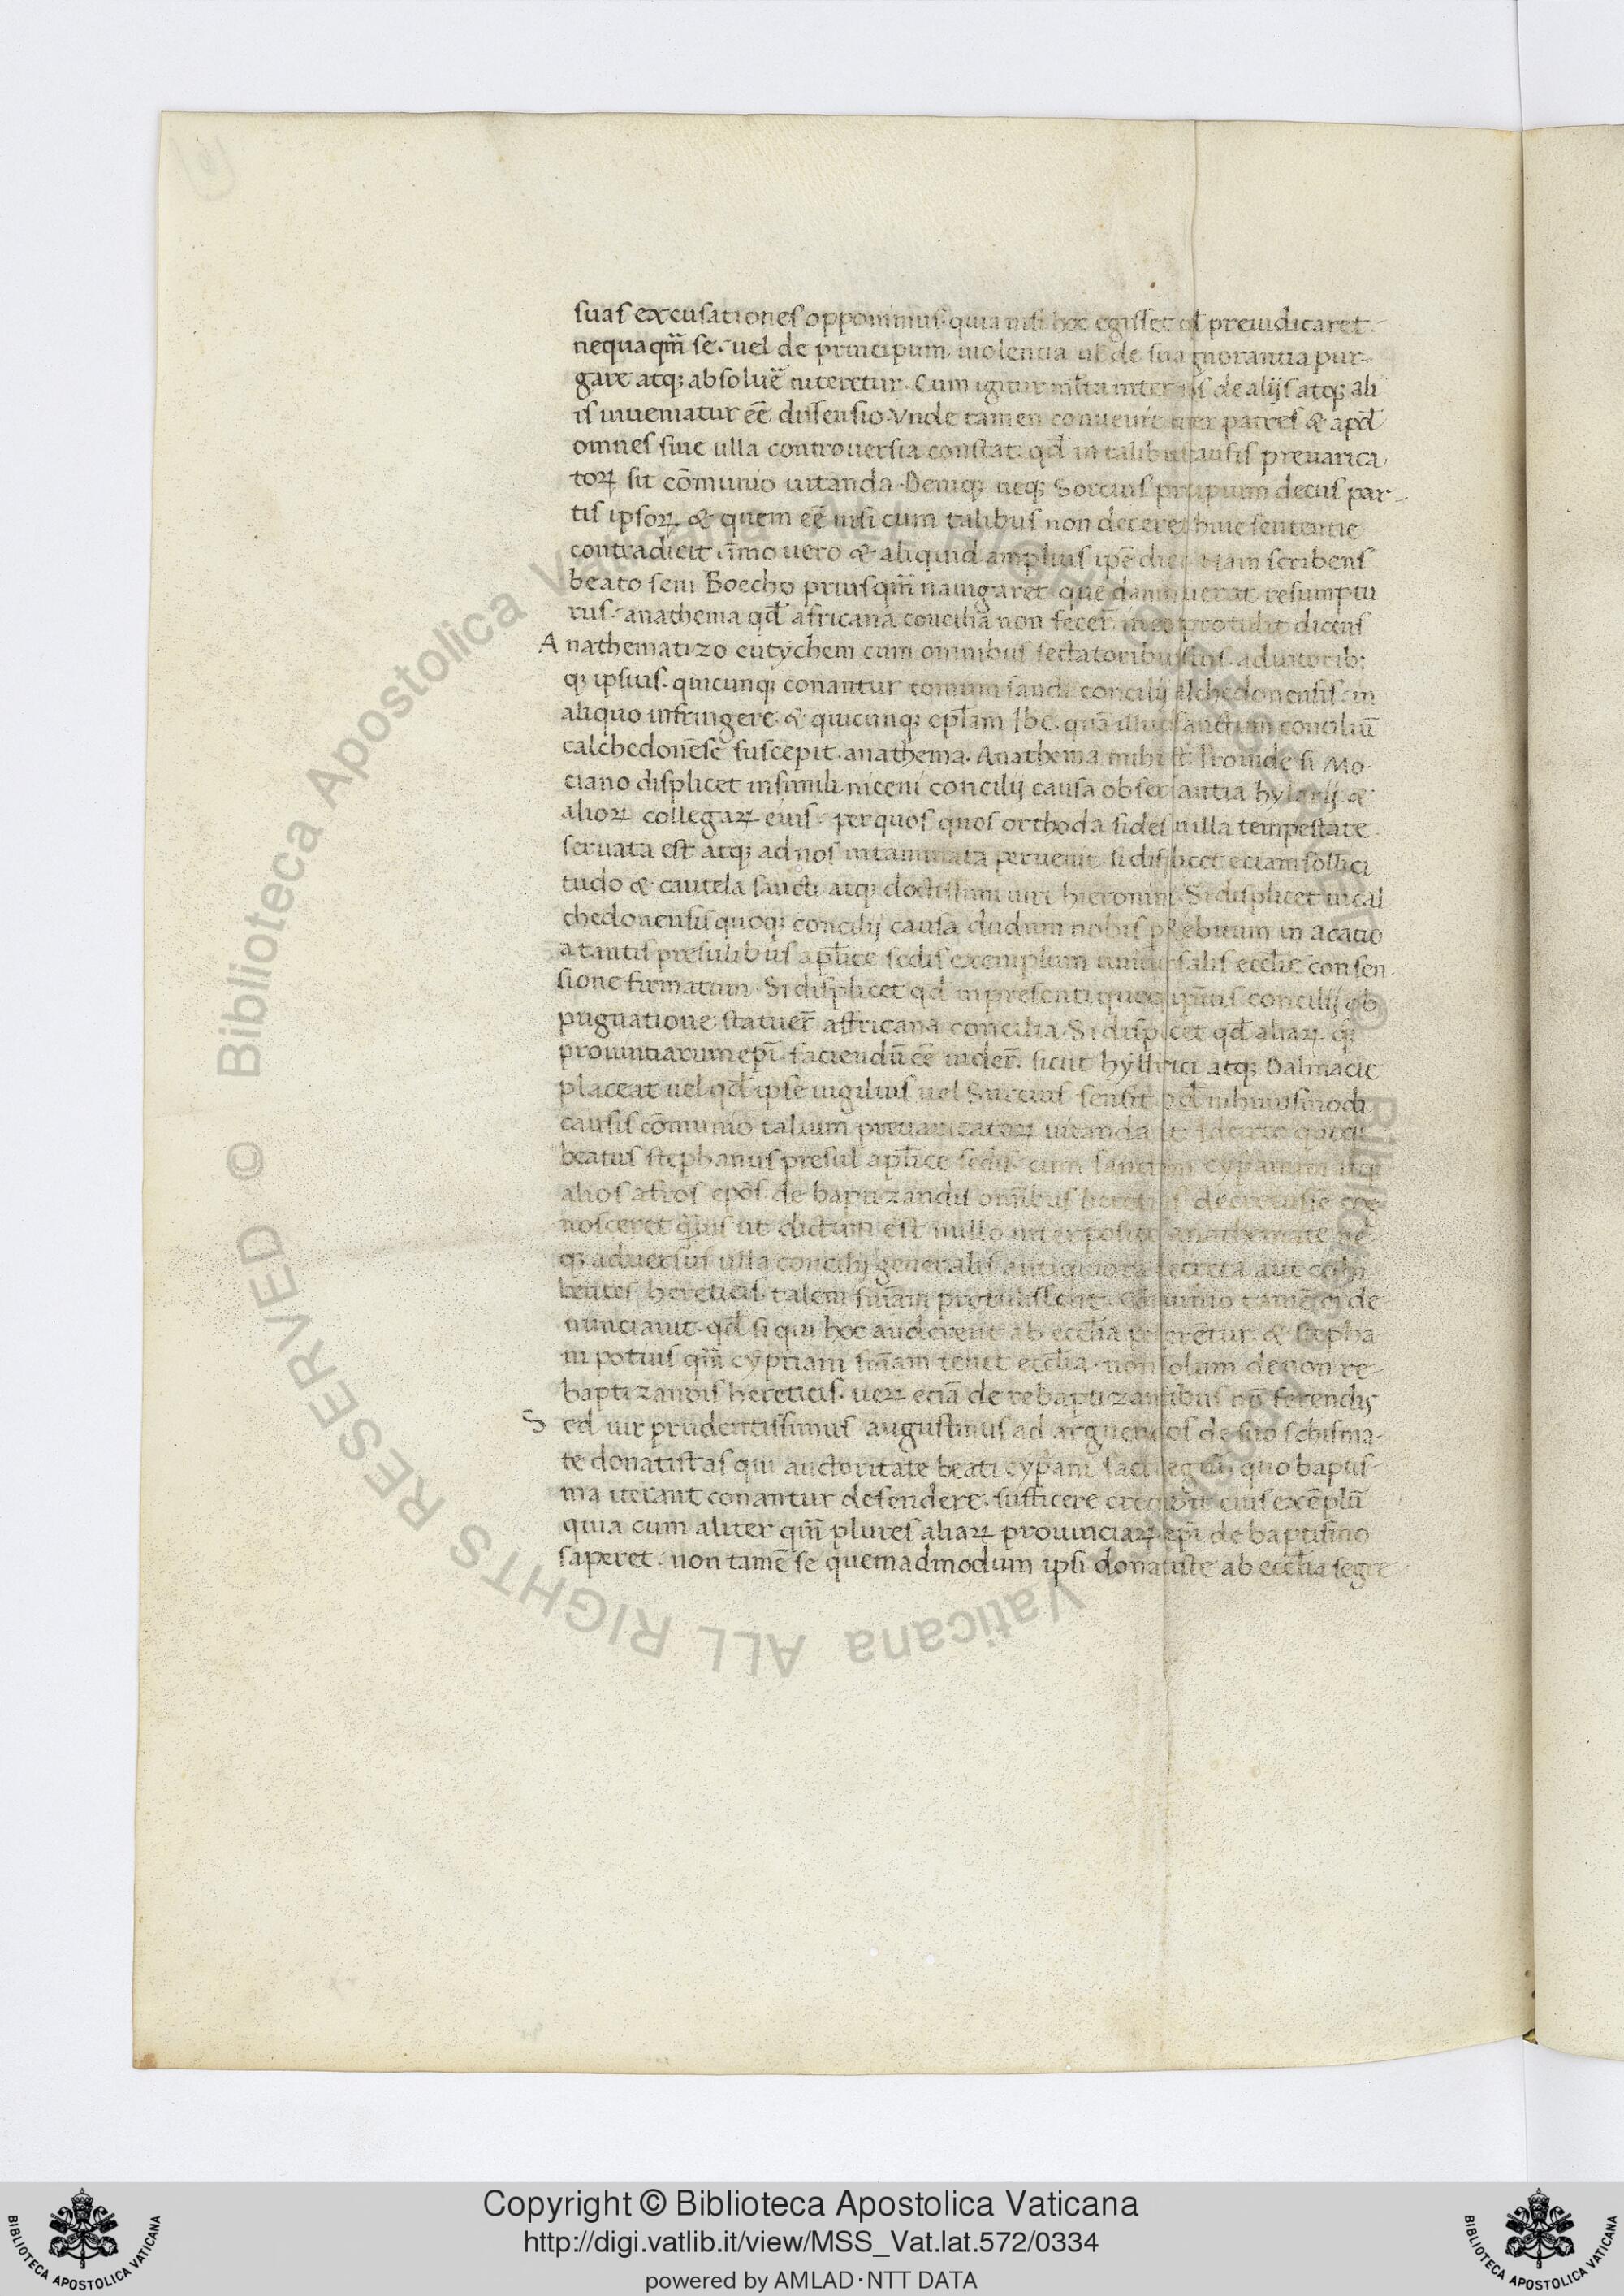 suas excusationes opponimus. quia nisi hoc egisset qd̄ preiudicaret
nequaqm̄ se. uel de principum uiolentia ul̄ de sua gnorantia pur-
gare atq; absoluē niteretur. Cum igitur ml̄ta inter nos de alijs atq; ali
is inueniatur eē dissensio. Vnde tamen conuenit inter patres & apd̄
omnes sine ulla controuersia constat. qd̄ in talibus causis preuarica
toꝝ sit cōmunio uitanda. Deniq; neq; Sorcius precipuum decus par-
tis ipsoꝝ & quem eē nisi cum talibus non deceret huic sententie
contradicit īmo uero & aliquid amplius ipē dicit Nam scribens
beato seni Boecho priusqm̄ nauigaret que damnuerat resumptu
rus. anathema qd̄ africana concilia non fecer̄ in eo protulit dicens
Anathematizo eutychem cum omnibus sectatoribus suis. adiutorib;
q; ipsius. quicunq; conantur tomum sancti concilij calchedonensis. in
aliquo infringere. & quicunq; epl̄am Ibe. quā illud sanctum conciliū
calchedonēse suscepit. anathema. Anathema mihi sit. Proinde si Mo
ciano displicet in simili niceni concilij causa obseruantia hylarij. &
alioꝝ collegaꝝ eius. per quos quos orthoda fides nulla tempestate
seruata est atq; ad nos intaminata peruenit. si displicet eciam sollici
tudo & cautela sancti atq; doctissimi uiri hieronimi. Si displicet in cal
chedonensis quoq; concilij causa dudum nobis pRebitum in acatio
a tantis presulibus apl̄ice sedis exemplum uniuersalis eccl̄ie consen
sione firmatum. Si displicet qd̄ in presenti quoq; ipsius concilij ob
pugnatione statuer̄ affricana concilia. Si displicet qd̄ aliaꝝ q;
prouintiarum epī. faciendū eē uider̄. sicut hyllirici atq; Dalmacie
placeat uel qd̄ ipse uigilius uel Surcius sensit. qd̄ in huiusmodi
causis cōmunio talium preuaricatoꝝ uitanda sit.
beatus stephanus presul apl̄ice sedis. cum sanctum cyp̄anum atq;
alios afros epōs. de baptizandis omībus hereticis decreuisse cog
nosceret qm̄uis ut dictum est nullo interposito anathemate ne
q; aduersus ulla concilij generalis antiquiora decreta aut cohi
bentes hereticis. talem sn̄iam protulissent. cōmunio tamē ei de
nunciauit. qd̄ si qui hoc auderent ab eccl̄ia & stepha
ni potius qm̄ cypriani sn̄iam tenet eccl̄ia. non solum de non re-
baptizandis hereticis. ueꝝ eciā de rebaptizantibus nō ferendis
Sed uir prudentissimus augustinus ad arguendos de suo schisma-
te donatistas qui auctoritate beati cyp̄ani sacrilegiū quo baptis-
ma iterant conantur defendere. sufficere credidit eius exēplū
quia cum aliter qm̄ plures aliaꝝ prouinciaꝝ epī de baptismo
saperet. non tamē se quemadmodum ipsi donatiste ab eccl̄ia segre
© Biblioteca Apostolica Vaticana ALL RIGHTS RESERVED
Copyright © Biblioteca Apostolica Vaticana
http://digi.vatlib.it/view/MSS_Vat.lat.572/0334
powered by AMLAD·NTT DATA
BIBLIOTECA APOSTOLICA VATICANA
BIBLIOTECA APOSTOLICA VATICANA